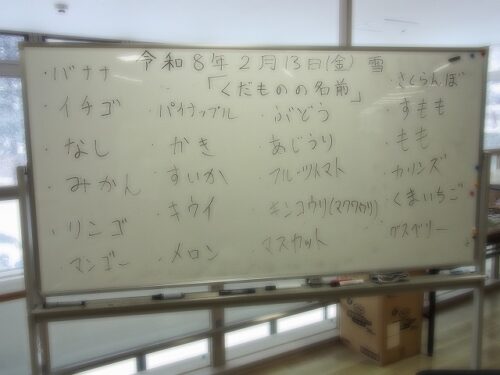 令和8年2月13日(金) 雪
「くだものの名前」
・バナナ
・イチゴ
・なし
・みかん
・リンゴ
・マンゴー
・パイナップル
・かき
・すいか
・キウイ
・メロン
・ぶどう
・あじうり
・フルーツトマト
・キンコウリ(マクワウリ)
・マスカット
・さくらんぼ
・すもも
・もも
・カリンズ
・くまいちご
・グスベリー